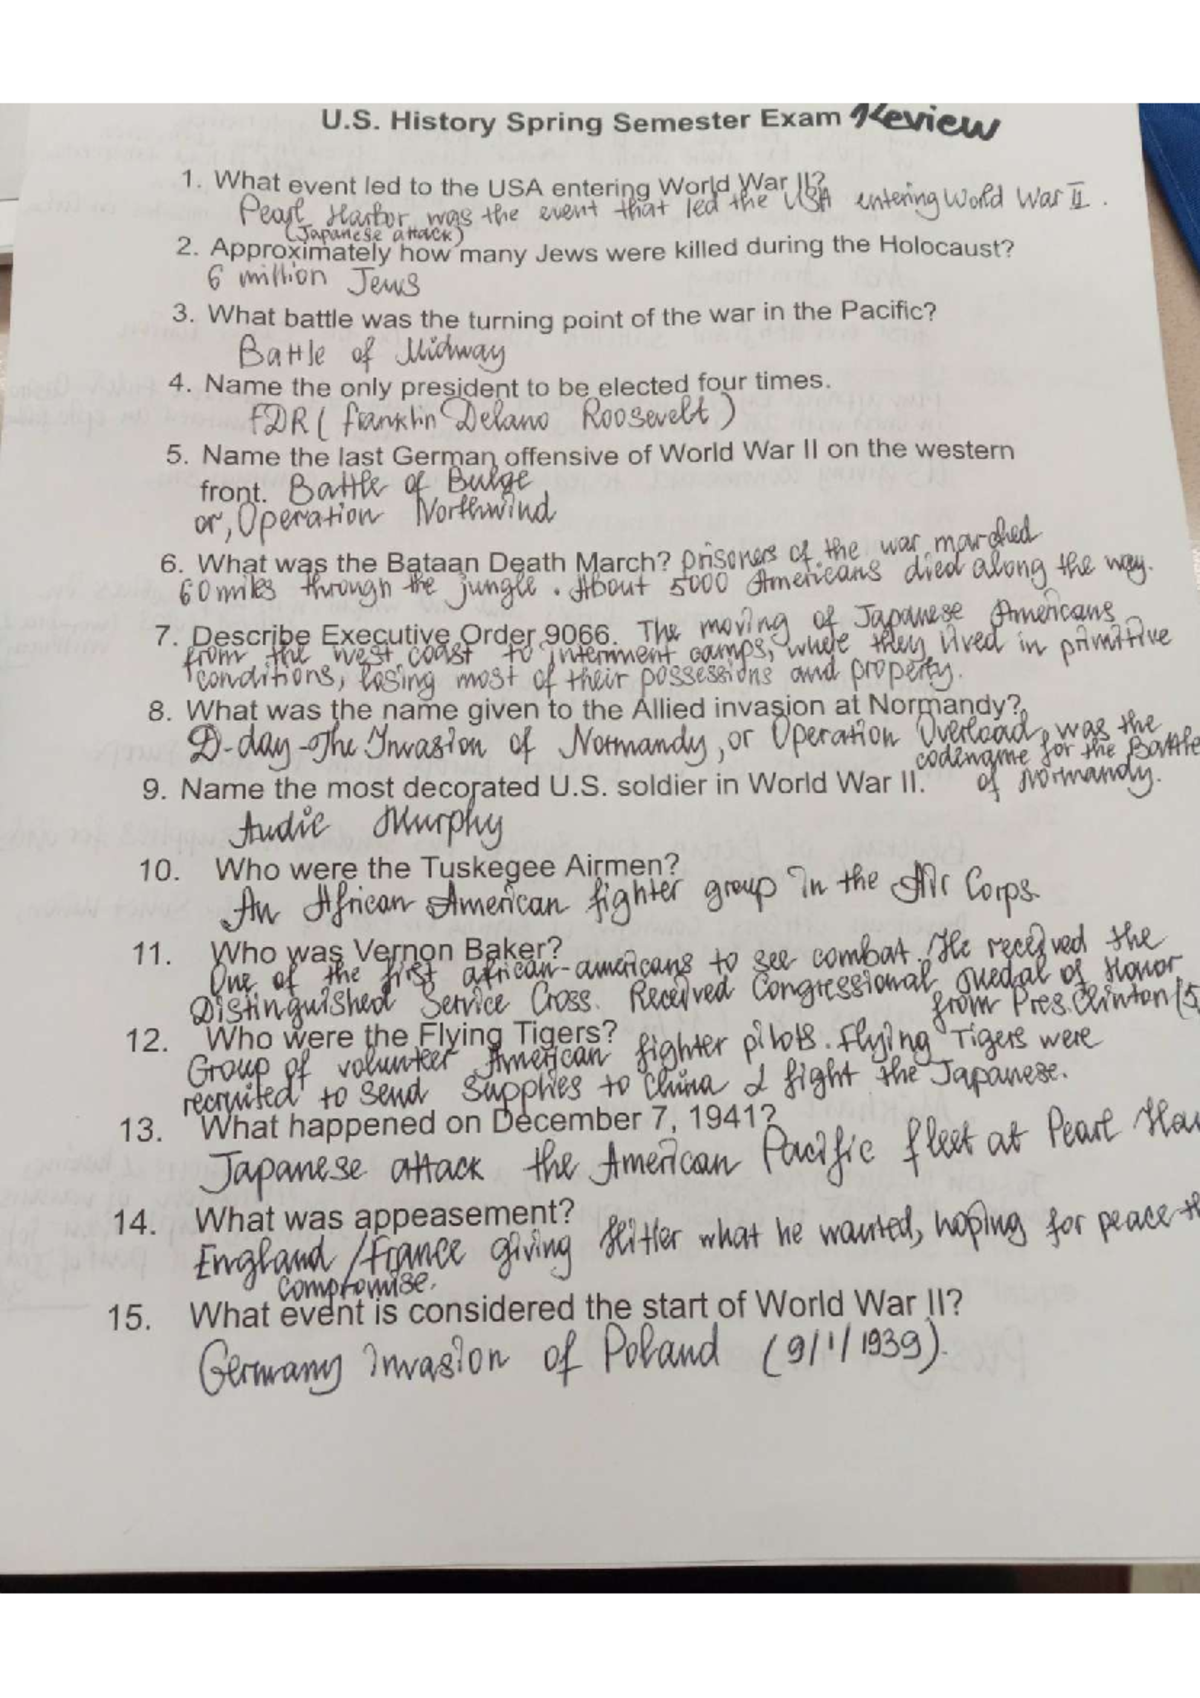 U.S. History Spring Semester Exam Review
1. What event led to the USA entering World War II?
Pearl Harbor was the event that led the USA entering World War II.
(Japanese attack)
2. Approximately how many Jews were killed during the Holocaust?
6 million Jews
3. What battle was the turning point of the war in the Pacific?
Battle of Midway
4. Name the only president to be elected four times.
FDR (Franklin Delano Roosevelt)
5. Name the last German offensive of World War II on the western
front. Battle of Bulge
or, Operation Northwind
6. What was the Bataan Death March? prisoners of the war marched
60 miles through the jungle. About 5000 Americans died along the way.
7. Describe Executive Order 9066. The moving of Japanese Americans
from the west coast to internment camps, where they lived in primitive
conditions, losing most of their possessions and property.
8. What was the name given to the Allied invasion at Normandy?
D-day-The Invasion of Normandy, or Operation Overload, was the
codename for the Battle
of Normandy.
9. Name the most decorated U.S. soldier in World War II.
Audie Murphy
10. Who were the Tuskegee Airmen?
An African American fighter group in the Air Corps.
11. Who was Vernon Baker?
One of the first african-americans to see combat. He received the
Distinguished Service Cross. Received Congressional Medal of Honor
from Pres. Clinton (5
12. Who were the Flying Tigers?
Group of volunteer American fighter pilots. Flying Tigers were
recruited to send supplies to China & fight the Japanese.
13. What happened on December 7, 1941?
Japanese attack the American Pacific fleet at Pearl Ha
14. What was appeasement?
England/France giving Hitler what he wanted, hoping for peace th
compromise.
15. What event is considered the start of World War II?
Germany invasion of Poland (9/1/1939).